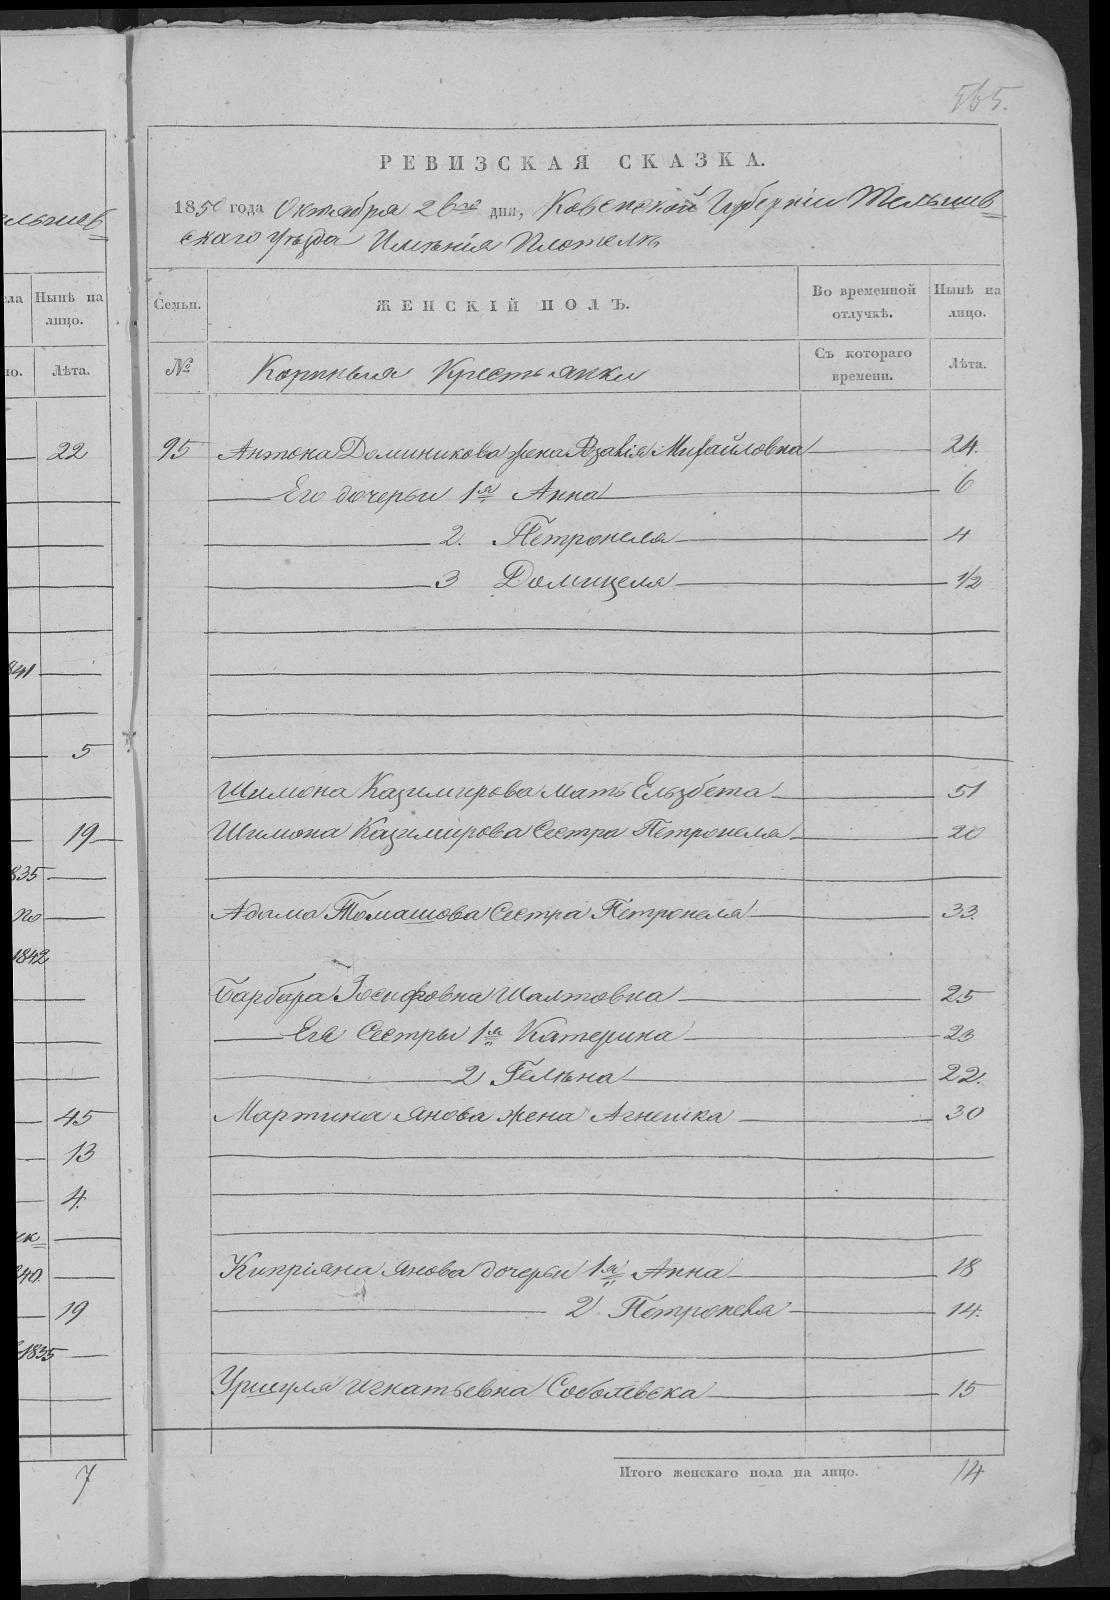 565.
РЕВИЗСКАЯ СКАЗКА.
1850 года Октября 26го дня, Ковенской Губерніи Тельшев=
скаго Уѣзда Имѣнія Плотель
ельшев=
Нынѣ на лицо.
Лѣта.
Семьи. ЖЕНСКІЙ ПОЛЪ. Во временной отлучкѣ. Нынѣ на лицо.
№ Коренныя Крестьянки Съ котораго времени. Лѣта.
22
95 Антона Доминикова жена Розалія Михайловна 24.
Его дочери 1я Анна 6
2. Петронеля 4
3 Домицеля 1/2
841
5
Шимона Казимирова мать Ельзбета 51
19
Шимона Казимирова Сестра Петронеля 20
835
Адама Томашова Сестра Петронеля 33.
1842
Барбара Іосифовна Шалтовна 25
Ея Сестры 1я Катерина 23
2 Гелѣна 22.
45
Мартина Янова жена Агнешка 30
13
4.
40.
Кипріяна Янова дочери 1я Анна 18
19
2 Петронеля 14.
1835
Уршуля Игнатьевна Соболевска 15
7
Итого женскаго пола на лицо. 14